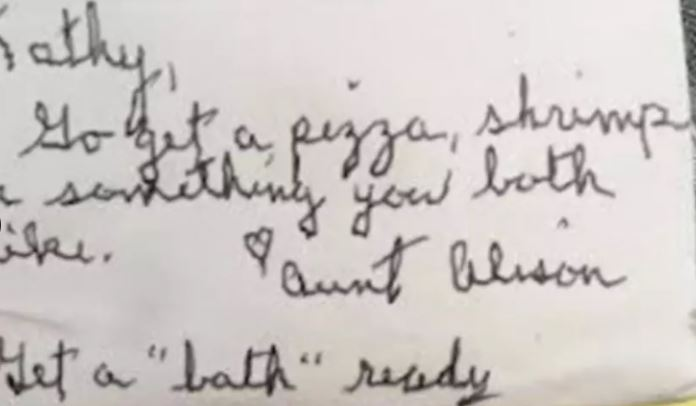 Kathy,
Go get a pizza, shrimp
something you both
like.
♡ Aunt Alison
Get a "bath" ready